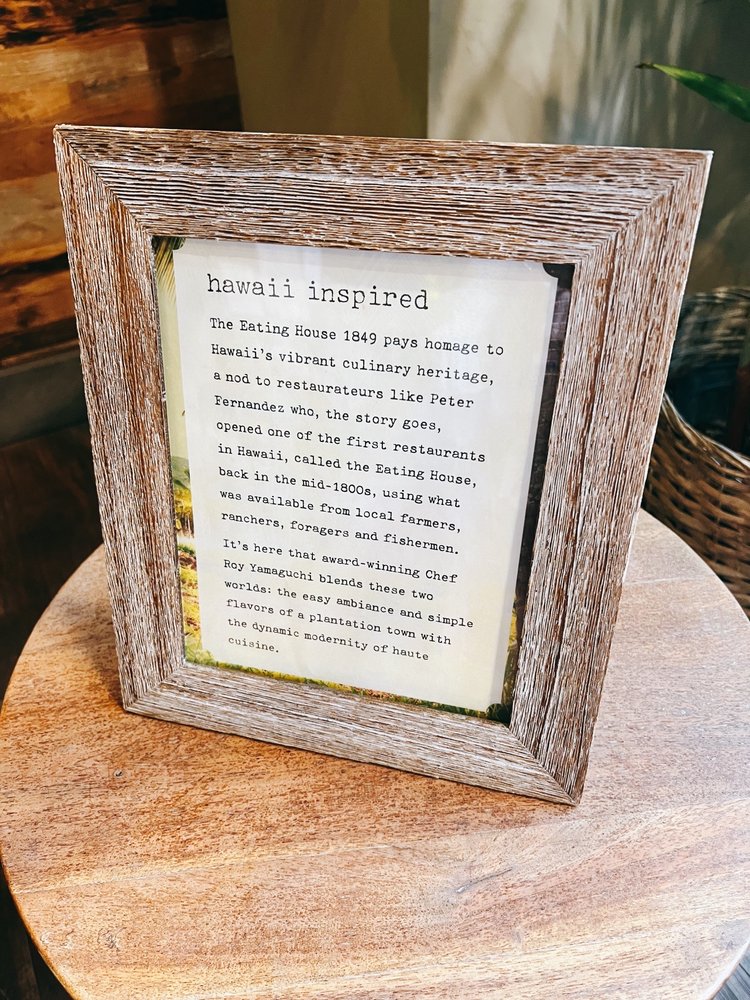 hawaii inspired
The Eating House 1849 pays homage to
Hawaii's vibrant culinary heritage,
a nod to restaurateurs like Peter
Fernandez who, the story goes,
opened one of the first restaurants
in Hawaii, called the Eating House,
back in the mid-1800s, using what
was available from local farmers,
ranchers, foragers and fishermen.
It's here that award-winning Chef
Roy Yamaguchi blends these two
worlds: the easy ambiance and simple
flavors of a plantation town with
the dynamic modernity of haute
cuisine.